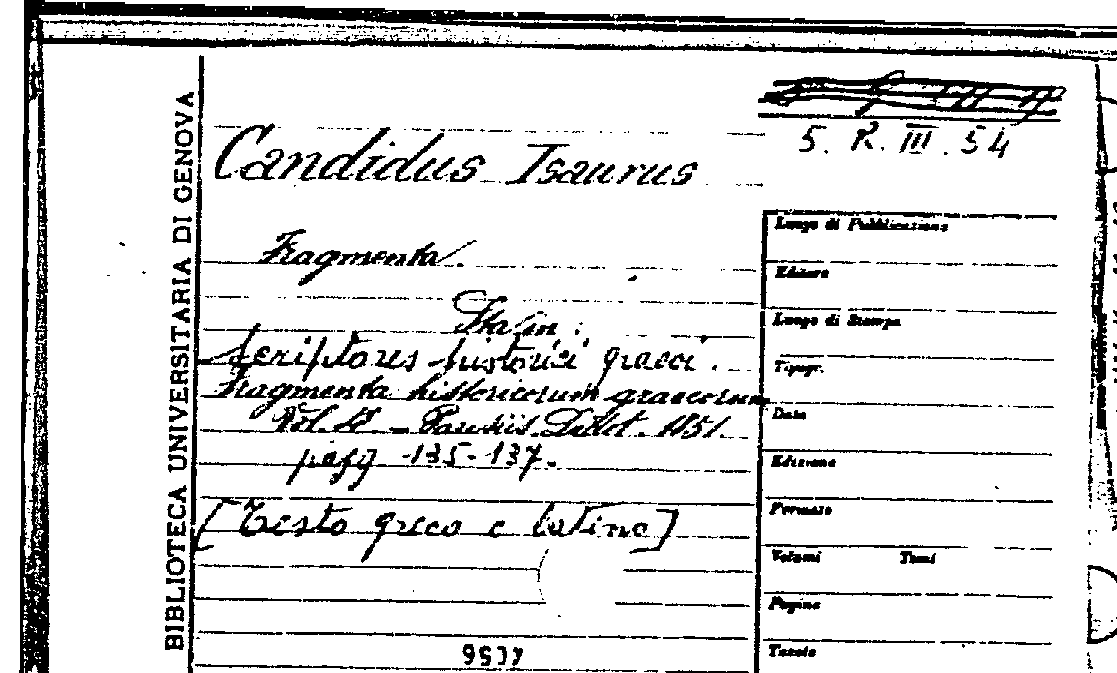 BIBLIOTECA UNIVERSITARIA DI GENOVA
5. R. III. 54
Candidus Isaurus
Fragmenta.
Sta in:
Scriptores historici graeci.
Fragmenta historicorum graecorum
Vol. – Parisiis Didot. 1851.
pagg 135-137.
[Testo greco e latino]
Luogo di Pubblicazione
Editore
Luogo di Stampa
Tipogr.
Data
Edizione
Formato
Volumi Tomi
Pagine
Tavole